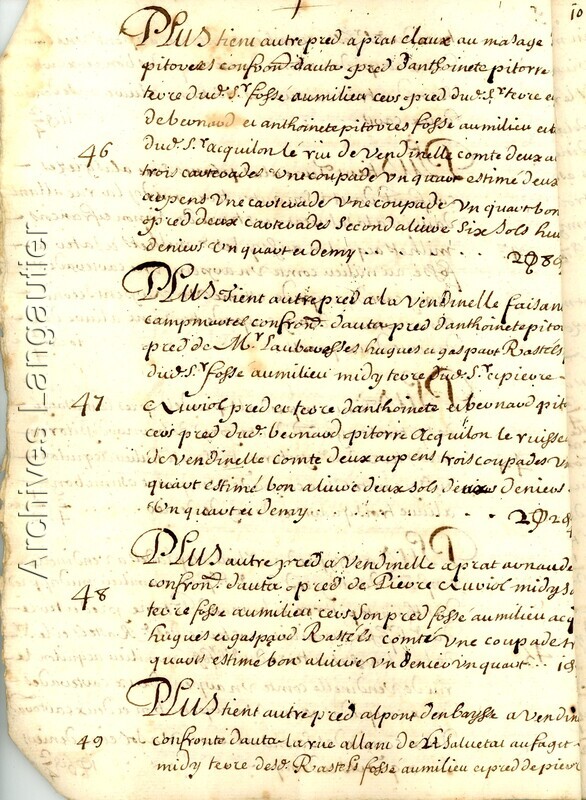 10
PLus tient autre pred a prat claux au masage
pitorres confron.d d'auta pred d'anthoinete pitorre
terre dud. S.r fossé au milieu cers pred dud. S.r terre et
de bernard et anthoinete pitorres fossé au milieu et
46
dud. S.r acquilon le riu de Vendinelle comte deux
trois carterades Une coupade Un quart estimé deux
arpens Une carterade Une coupade Un quart bon
pred deux carterades second alivre six sols
deniers Un quart et demy
PLus Tient autre pred a la Vendinelle
campmartel confron.d d'auta pred d'anthoinete
pred de M.r hugues et gaspart Rastels
dud. S.r fosse au milieu midy terre dud. S.r et pierre
47
Cluviol pred et terre d'anthoinete et bernard
cers pred dud. bernard pitorre acquilon le
de Vendinelle comte deux arpens trois coupades
quart estimé bon alivre deux sols deniers
Un quart et demy
PLus autre pred a Vendinelle a prat
48
confron.d d'auta pred de Pierre Cluviol midy
terre fosse au milieu cers son pred fossé au milieu
hugues et gaspard Rastels comte Une coupade
quarts estimé bon alivre Un denier Un quart
PLus tient autre pred al pont
49
confronte d'auta la rue allant de La salvetat au faget
midy terre desd. Rastels fosse au milieu et pred de
Archives Langautier